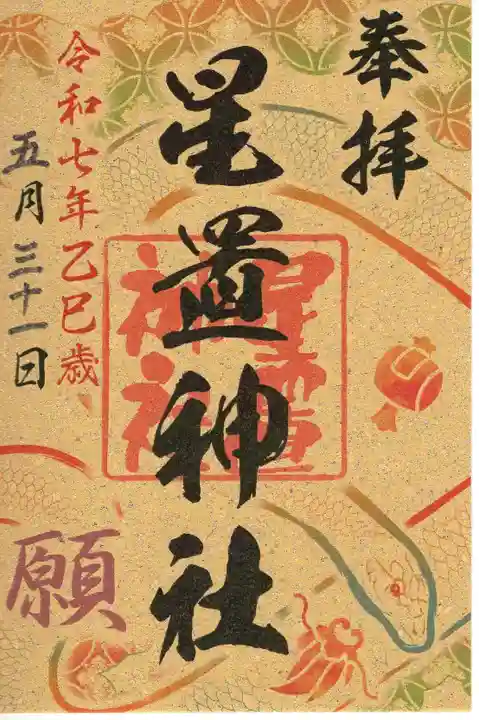 奉拝
星置神社
星置
神社
令和七年乙巳歳
五月三十一日
願